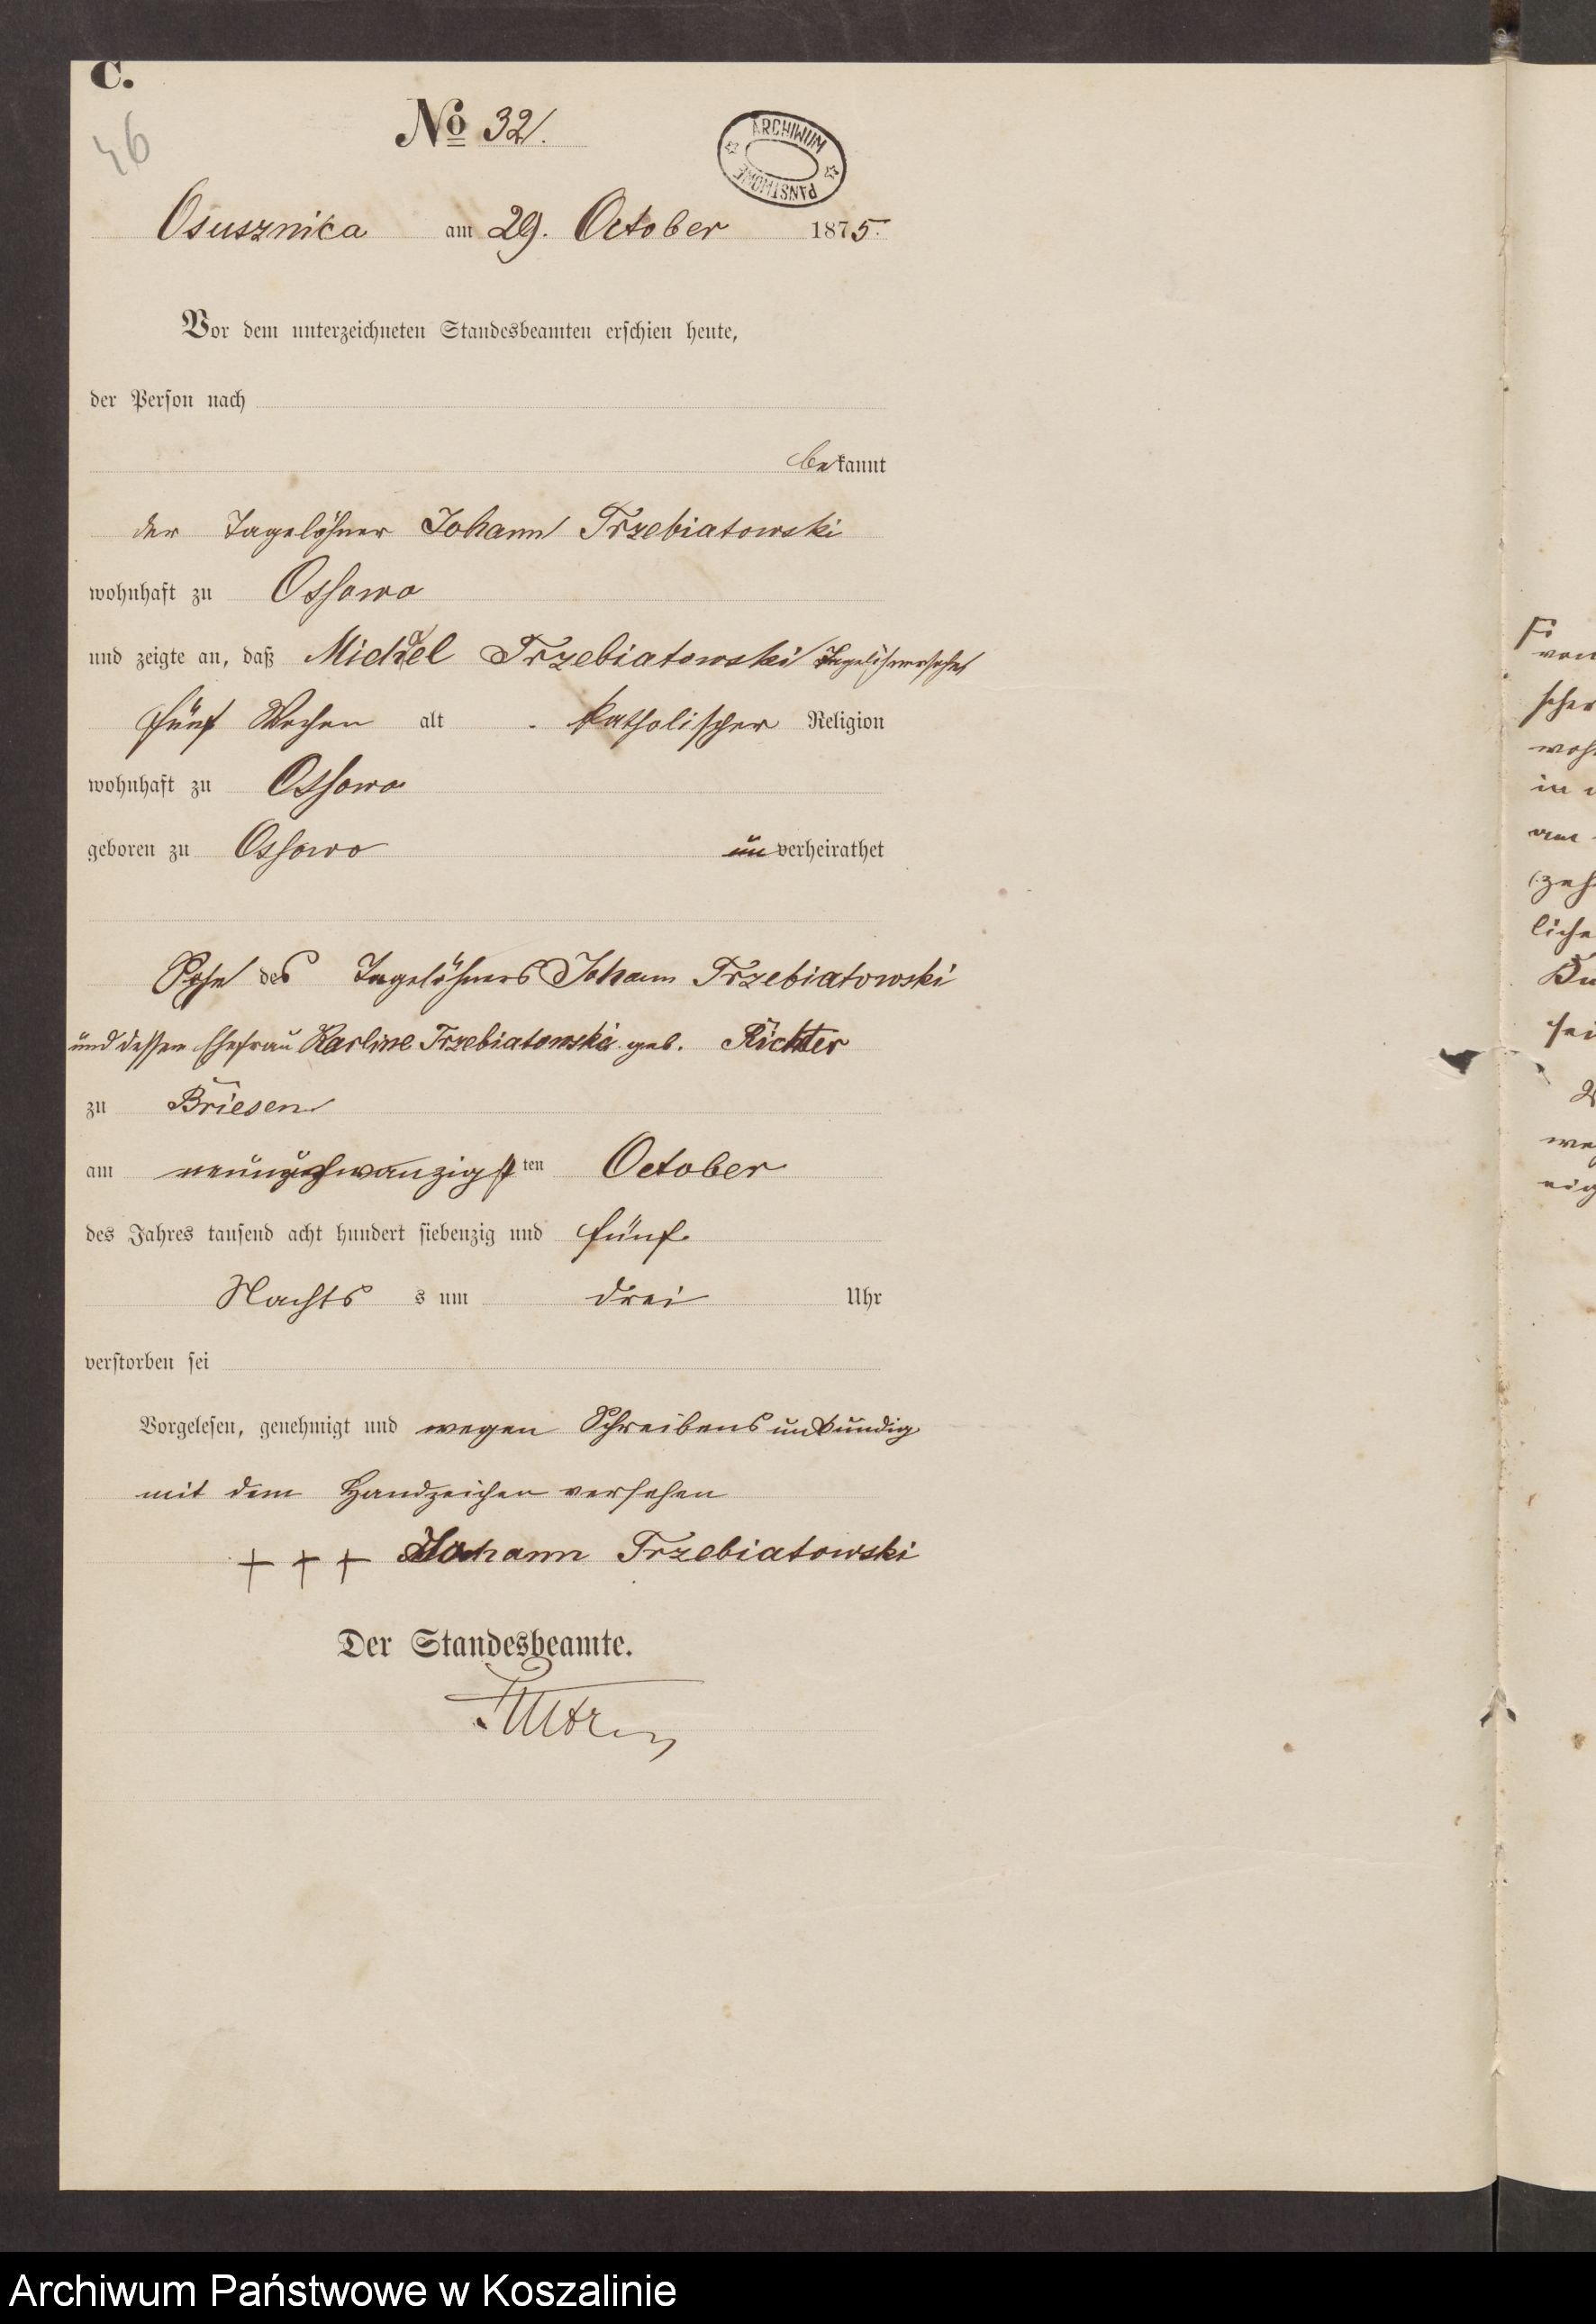 C.
46
No 32.
ARCHIWUM PAŃSTWOWE
Osusznica am 29. October 1875.
Vor dem unterzeichneten Standesbeamten erschien heute,
der Person nach
bekannt
der Tagelöhner Johann Trzebiatowski
wohnhaft zu Ossowo
und zeigte an, daß Michael Trzebiatowski Tagelöhnersohn
fünf Wochen alt katholischer Religion
wohnhaft zu Ossowo
geboren zu Ossowo un verheirathet
Sohn des Tagelöhners Johann Trzebiatowski
und dessen Ehefrau Karline Trzebiatowski geb. Richter
zu Briesen
am neunzwanzigsten October
des Jahres tausend acht hundert siebenzig und fünf
Nachts s um drei Uhr
verstorben sei
Vorgelesen, genehmigt und wegen Schreibens unkundig
mit dem Handzeichen versehen
+ + + Johann Trzebiatowski
Der Standesbeamte.
von
in
Archiwum Państwowe w Koszalinie